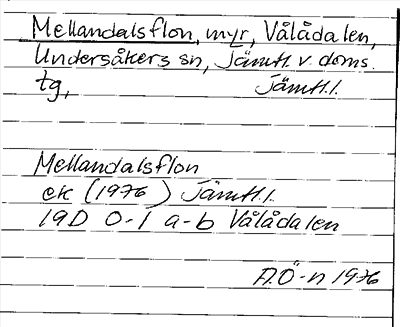 Mellandalsflon, myr, Vålådalen,
Undersåkers sn, Jämtl. v. doms.
tg, Jämtl. l.
Mellandalsflon
ek (1976) Jämtl. l.
19D 0-1 a-b Vålådalen
A.Ö-n 1976